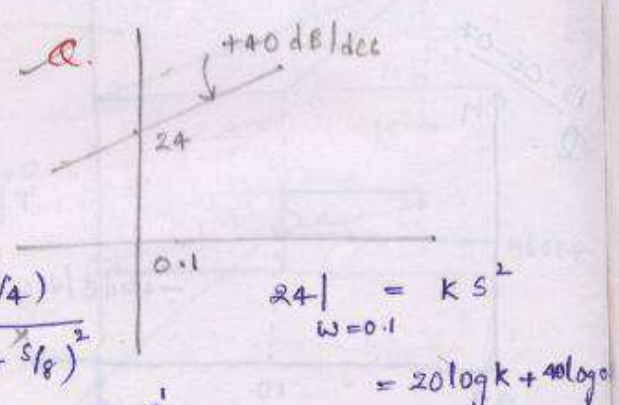 Q.
+40 dB/dec
24
0.1
/4)
s/8)²
24| = K S²
ω=0.1
= 20 log K + 40 log 0